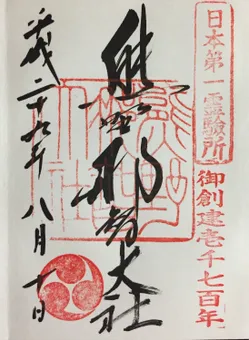 日本第一霊験所
御創建壱千七百年
熊野那智大社
平成二十九年八月十日
熊野
那智
大社